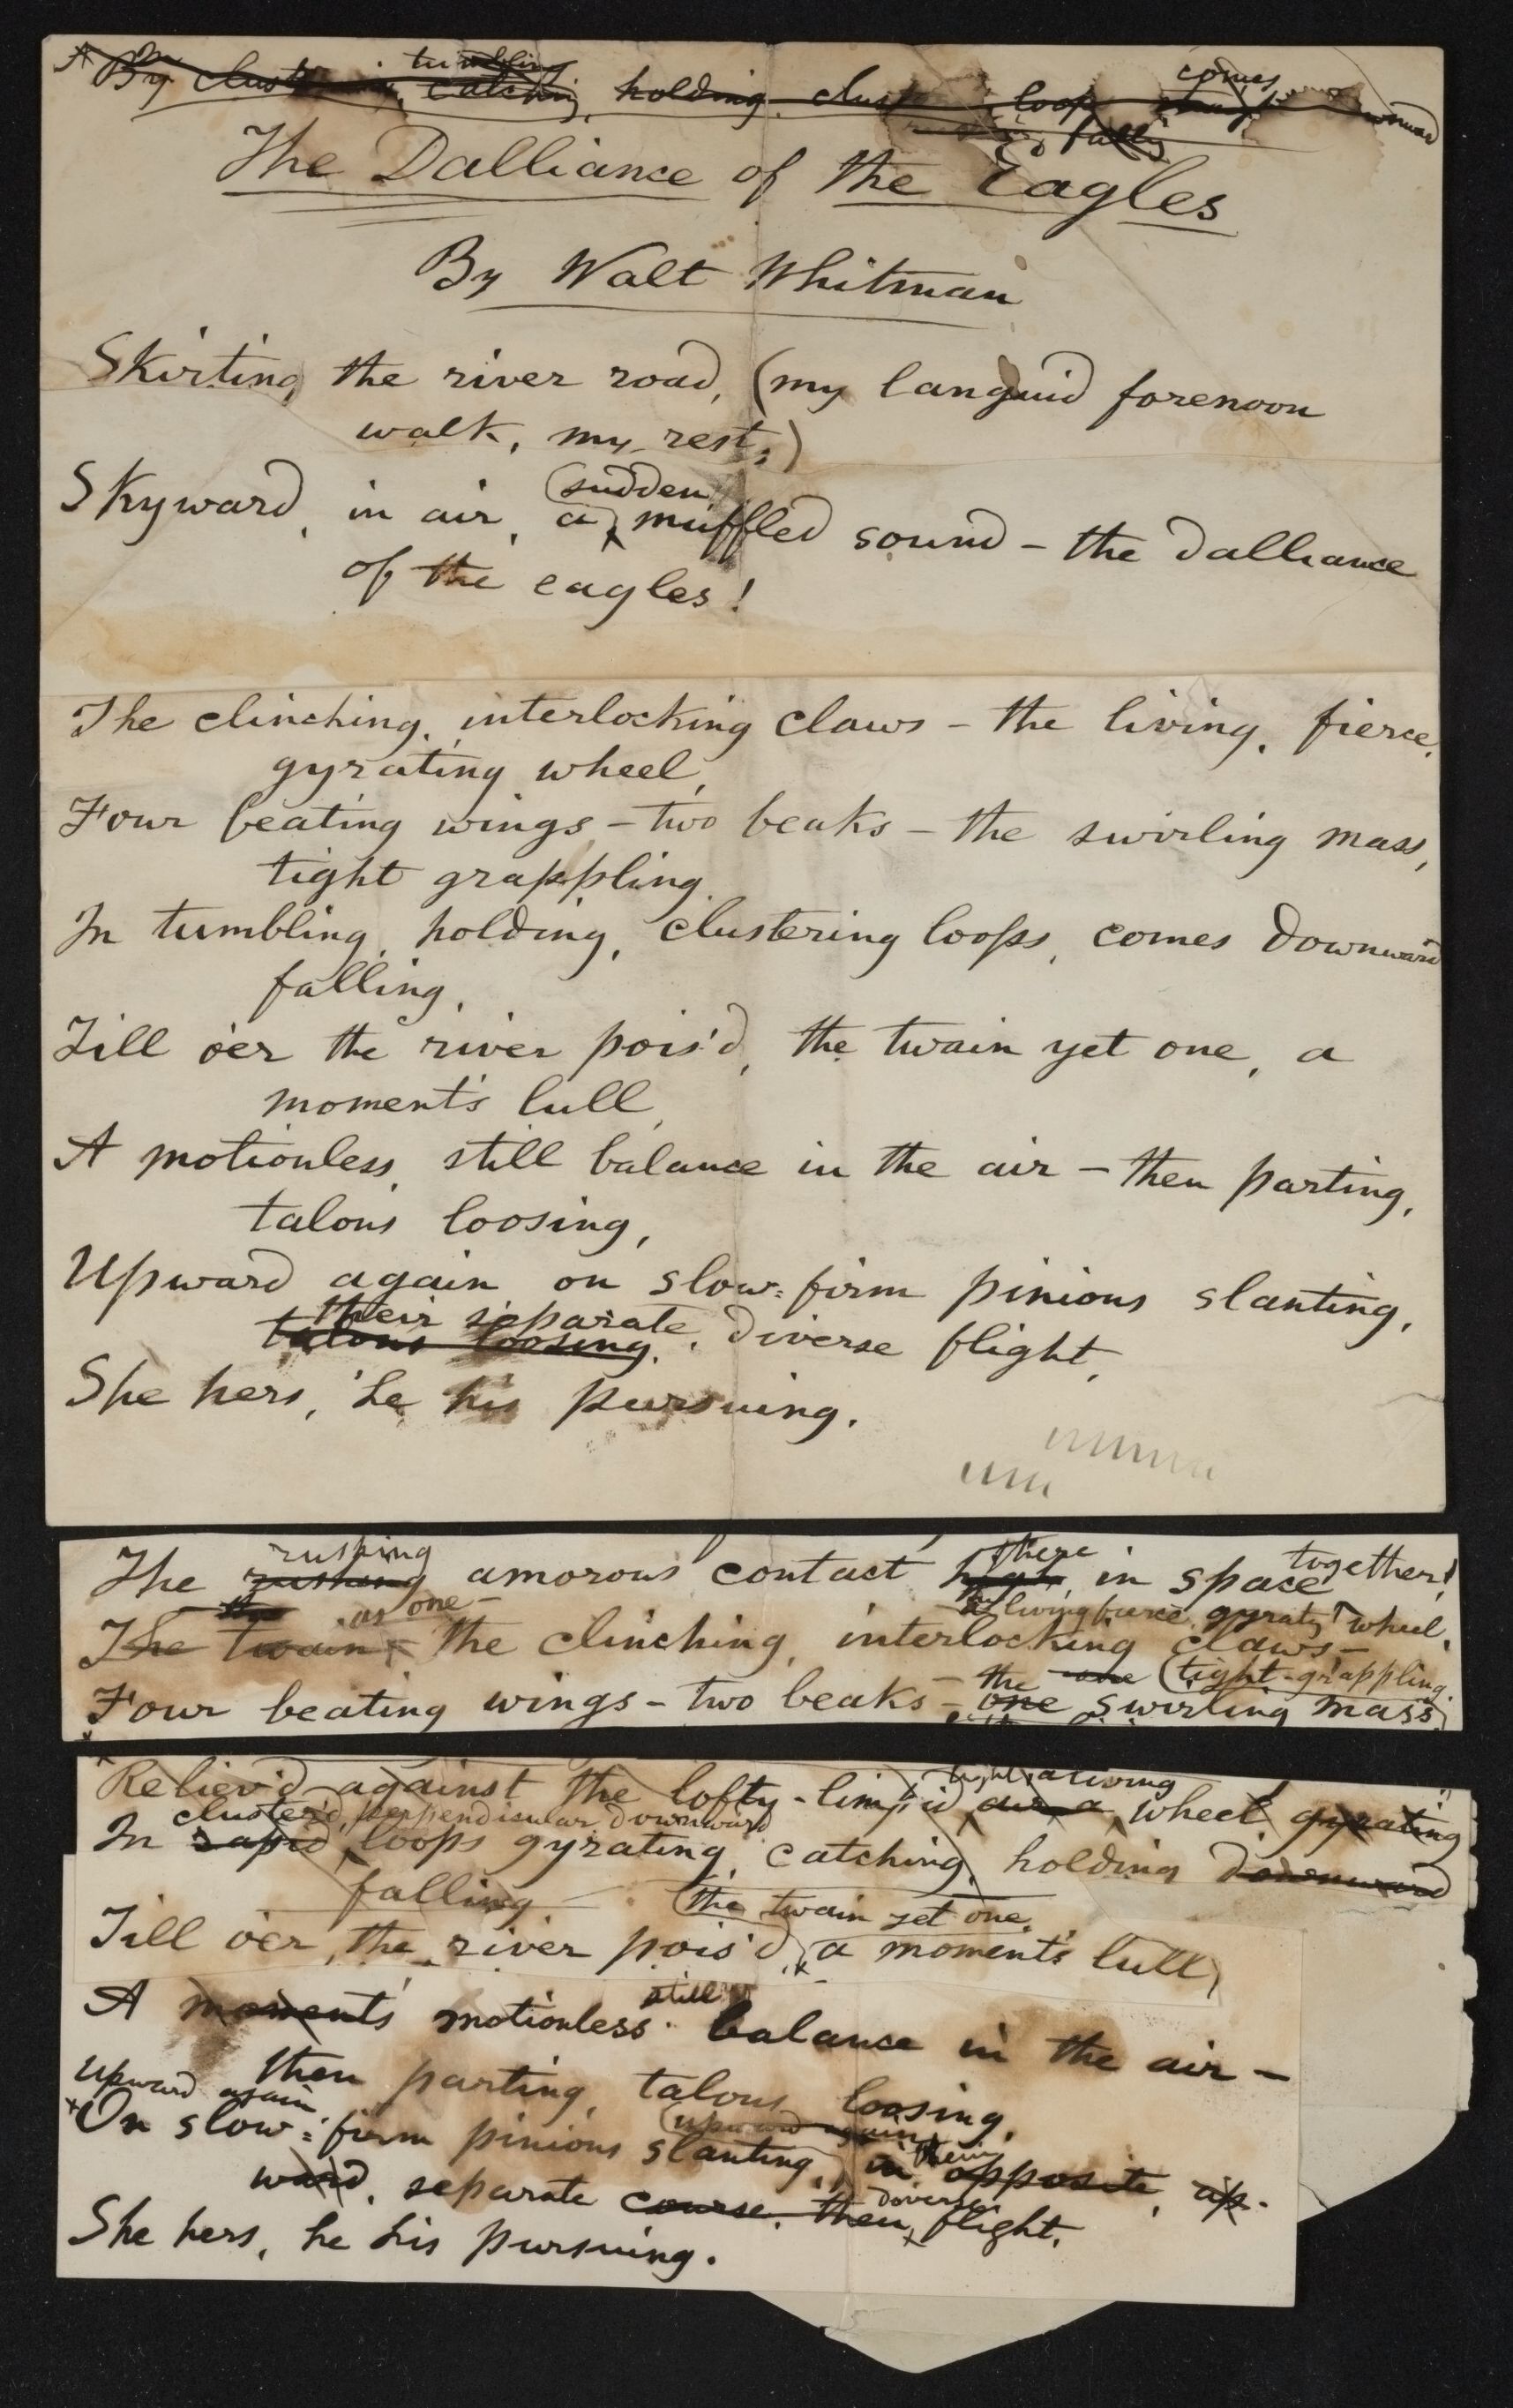 tumbling comes
A By catching, holding loop downward
falling
The Dalliance of the Eagles
By Walt Whitman
Skirting the river road, (my languid forenoon
walk, my rest,)
sudden
Skyward, in air, a muffled sound – the dalliance
of the eagles!
The clinching, interlocking claws – the living, fierce,
gyrating wheel,
Four beating wings – two beaks – the swirling mass,
tight grappling,
In tumbling, holding, clustering loops, comes downward
falling,
Till o'er the river pois'd, the twain yet one, a
moment's lull,
A motionless still balance in the air – then parting,
talons loosing,
Upward again on slow-firm pinions slanting,
their separate
talons loosing, diverse flight,
She hers, he his pursuing.
rushing there together!
The rushing amorous contact high in space
the as one – a living fierce, gyrating wheel,
The twain, the clinching, interlocking claws –
the one tight-grappling,
Four beating wings – two beaks – one swirling mass
a living
Reliev'd against the lofty-limpid air a wheel gyrating
cluster'd, perpendicular downward
In rapid loops gyrating, catching, holding downward
falling
the twain yet one,
Till o'er the river pois'd, a moment's lull,
still
A moment's motionless balance in the air –
then parting, talons loosing,
Upward again upward again
On slow-firm pinions slanting, in their opposite, up-
diverse
ward, separate course, then flight,
She hers, he his pursuing.